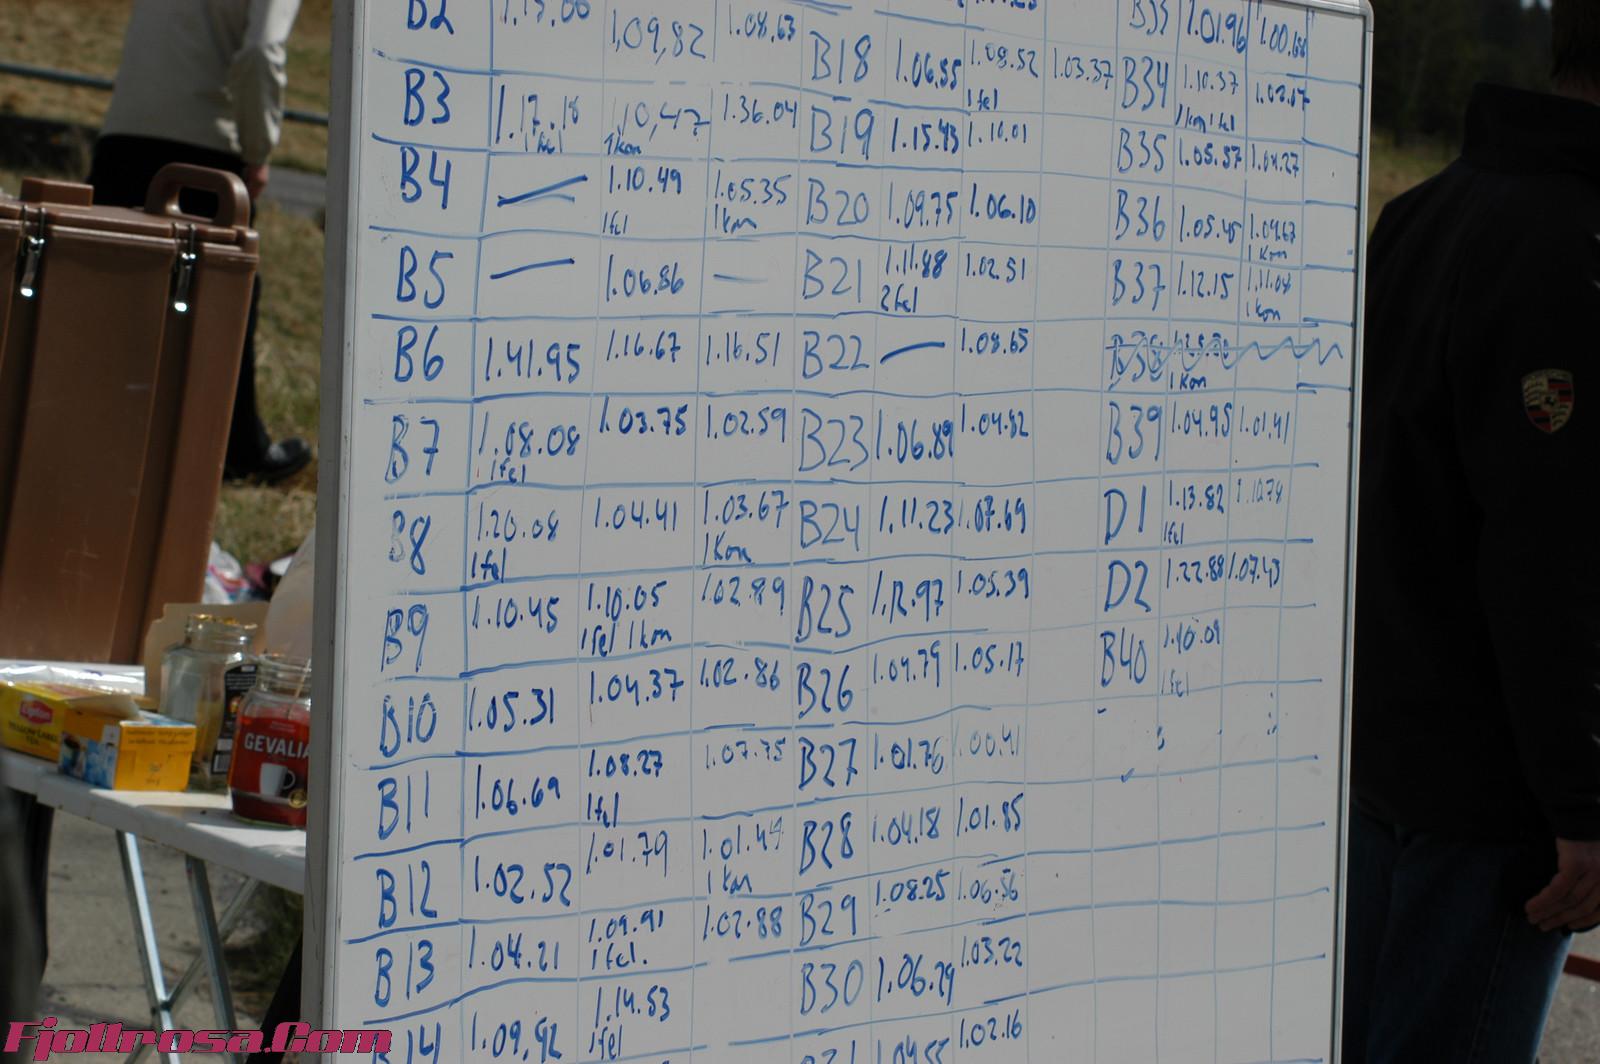 B2 1.15.00 1,09,82 1.08.63
B3 1.17.18 1.10,47 1.36.04
1fel 1kon
B4 — 1.10.49 1.05.35
1fel 1kon
B5 — 1.06.86 —
B6 1.41.95 1.16.67 1.16.51
B7 1.08.08 1.03.75 1.02.59
1fel
B8 1.20.08 1.04.41 1.03.67
1fel 1Kon
B9 1.10.45 1.10.05 1.02.89
1fel 1kon
B10 1.05.31 1.04.37 1.02.86
B11 1.06.69 1.08.27 1.07.75
1fel
B12 1.02.52 1.01.79 1.01.44
1 Kon
B13 1.04.21 1.09.91 1.02.88
1fel.
B14 1.09,92 1.14.53
1fel
B18 1.06.55 1.08.52 1.03.37
1fel
B19 1.15.43 1.10.01
B20 1.09.75 1.06.10
B21 1.11.88 1.02.51
2fel
B22 — 1.08.65
B23 1.06.89 1.04.82
B24 1.11.23 1.07.69
B25 1.12.97 1.05.39
B26 1.04.79 1.05.17
B27 1.01.76 1.00.41
B28 1.04.18 1.01.85
B29 1.08.25 1.06.56
B30 1.06.29 1.03.22
1.02.16
B33 1.01.96
B34 1.10.37 1.02.17
1kon 1fel
B35 1.05.57 1.04.27
B36 1.05.45 1.09.67
1 Kon
B37 1.12.15 1.11.04
1 Kon
B38
1 Kon
B39 1.04.95 1.01.41
D1 1.13.82
1fel
D2 1.22.88 1.07.43
B40 1.10.09
1fel
Lipton
YELLOW LABEL
TEA
GEVALIA
Fjollrosa.Com